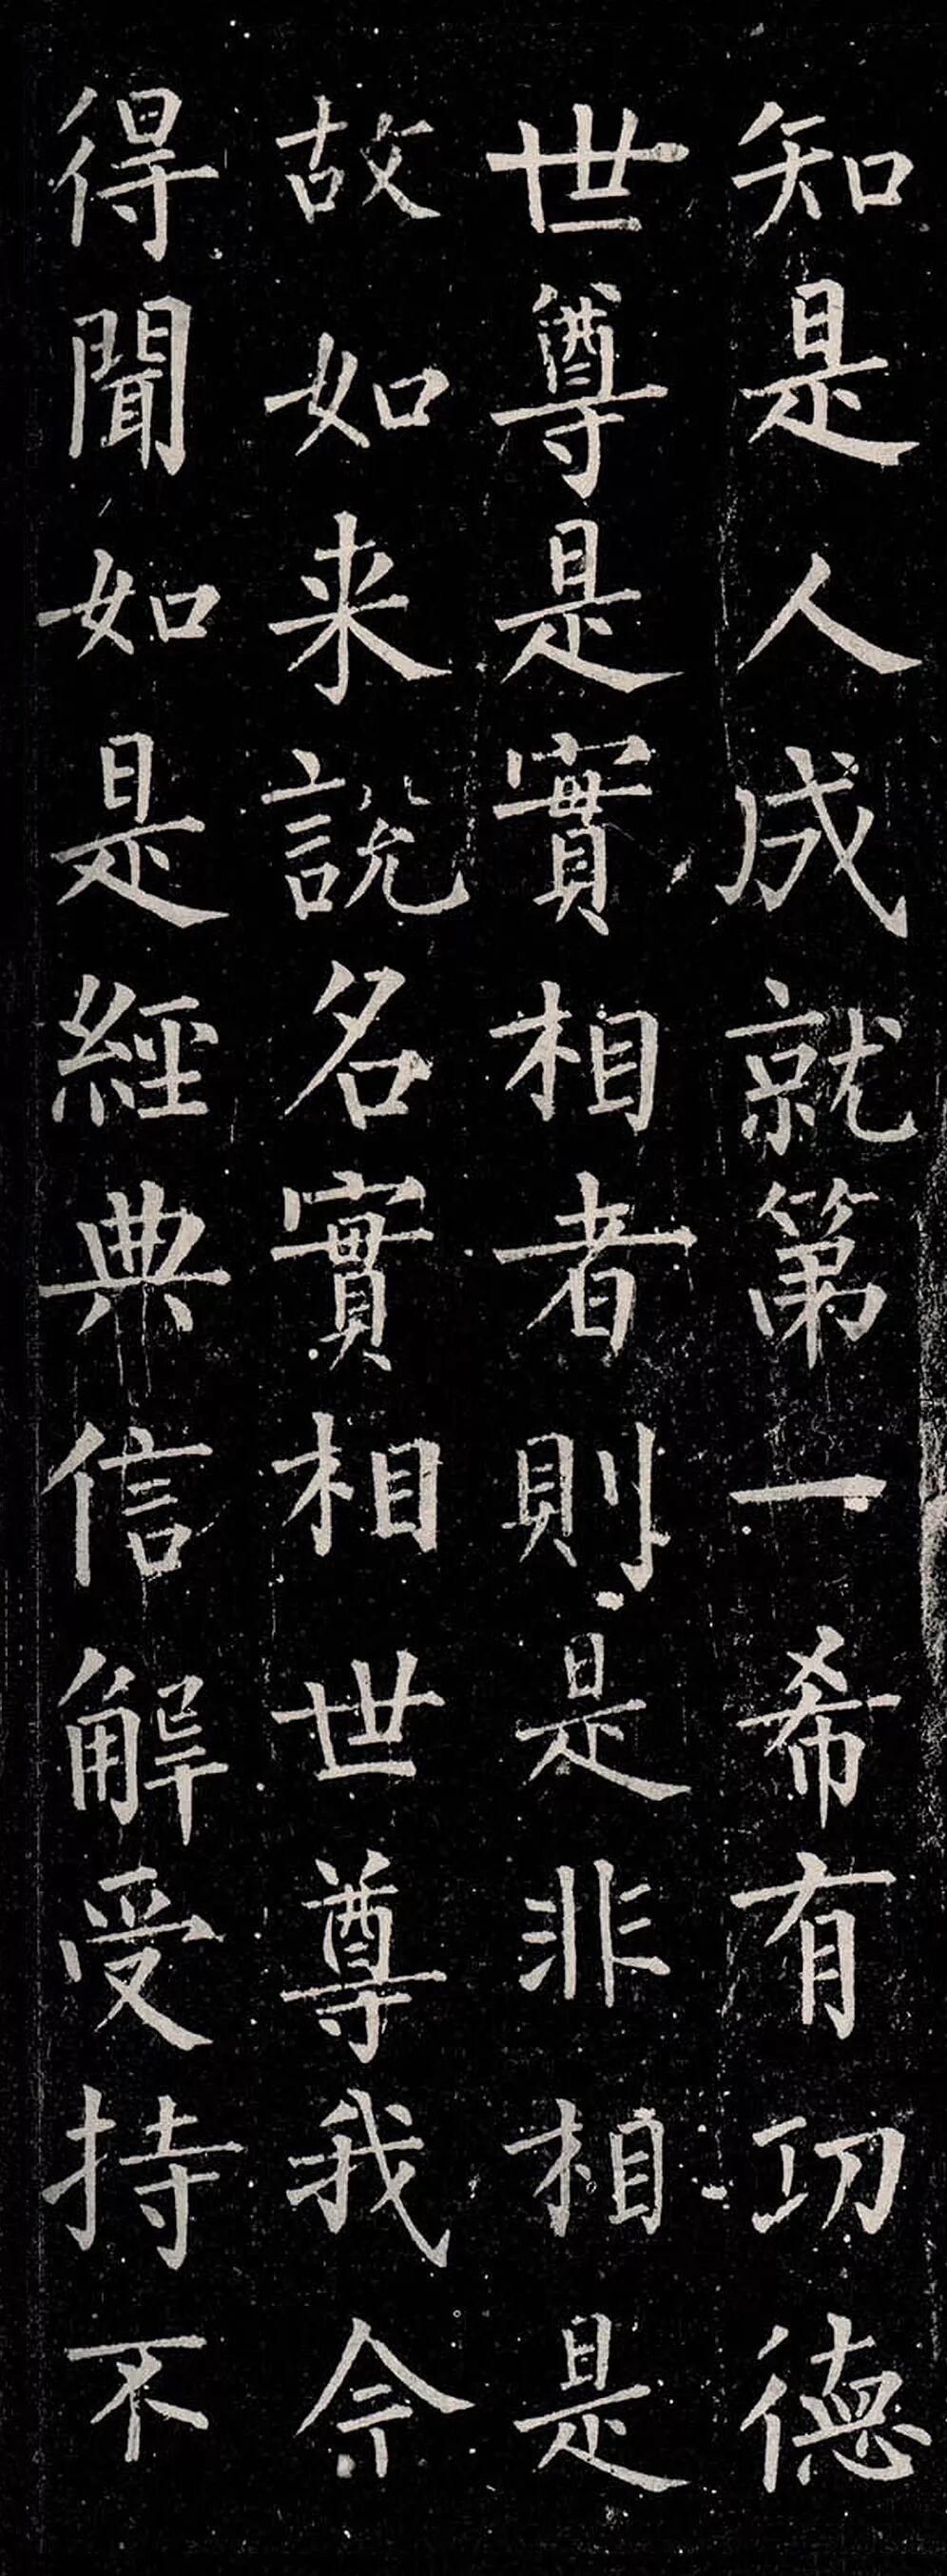 知是人成就第一希有功德
世尊是實相者則是非相是
故如来説名實相世尊我今
得聞如是經典信解受持不